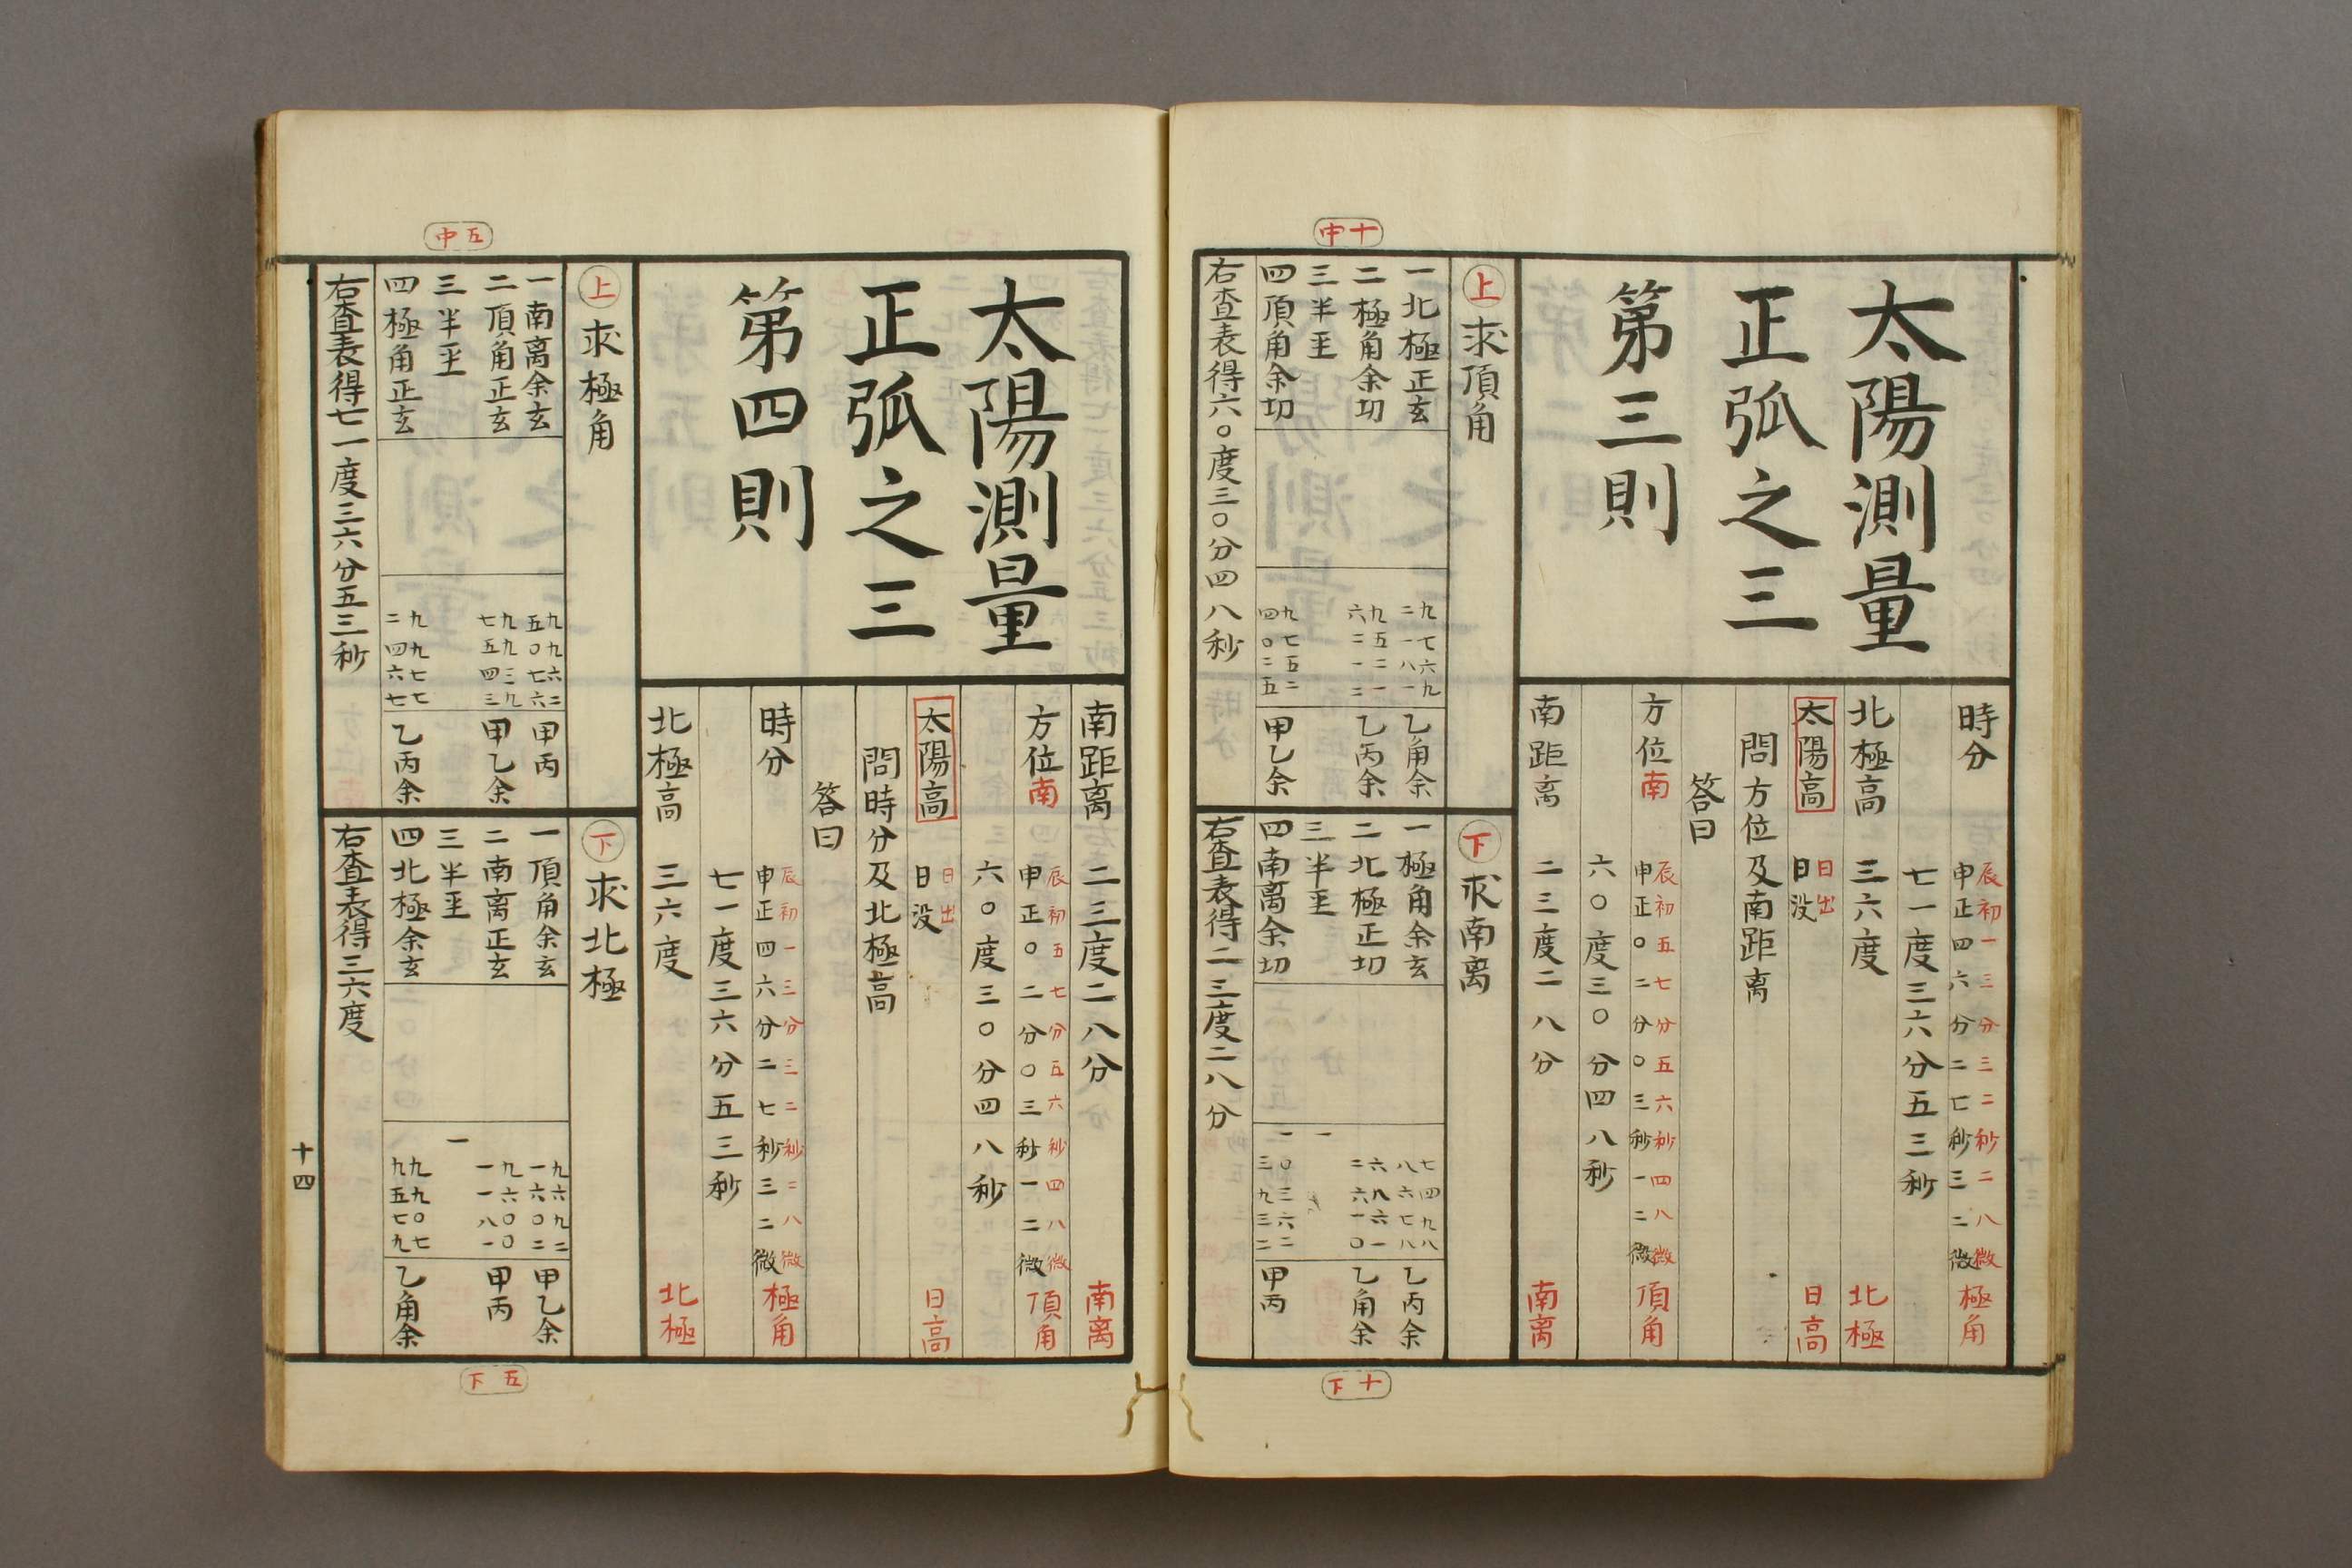 十中
太陽測量
正弧之三
第三則
時分 辰初一三分三二秒二八微 極角
申正四六分二七秒三二微
七一度三六分五三秒
北極高 三六度 北極
太陽高 日出 日高
日没
問方位及南距离
答曰
方位南 辰初五七分五六秒四八微 頂角
申正〇二分〇三秒一二微
六〇度三〇分四八秒
南距离 二三度二八分 南离
上 求頂角
一北極正玄 九七六九二一八一 乙角余
二極角余切 九五二一六二一二 乙丙余
三半圣
四頂角余切 九七五二四〇二五 甲乙余
右查表得六〇度三〇分四八秒
下 求南离
一極角余玄 七四九八八六七八 乙丙余
二北極正切 六八六一二六一〇 乙角余
三半圣 一
四南离余切 一〇三六二三九三二 甲丙
右查表得二三度二八分
十下
五中
太陽測量
正弧之三
第四則
南距离 二三度二八分 南离
方位南 辰初五七分五六秒四八微 頂角
申正〇二分〇三秒一二微
六〇度三〇分四八秒
太陽高 日出 日高
日没
問時分及北極高
答曰
時分 辰初一三分三二秒二八微 極角
申正四六分二七秒三二微
七一度三六分五三秒
北極高 三六度 北極
上 求極角
一南离余玄 九九六二五〇七六 甲丙
二頂角正玄 九九三九七五四三 甲乙余
三半圣
四極角正玄 九九七七二四六七 乙丙余
右查表得七一度三六分五三秒
下 求北極
一頂角余玄 九六九二一六〇二 甲乙余
二南离正玄 九六〇〇一一八一 甲丙
三半圣 一
四北極余玄 九九〇七九五七九 乙角余
右查表得三六度
十四
五下